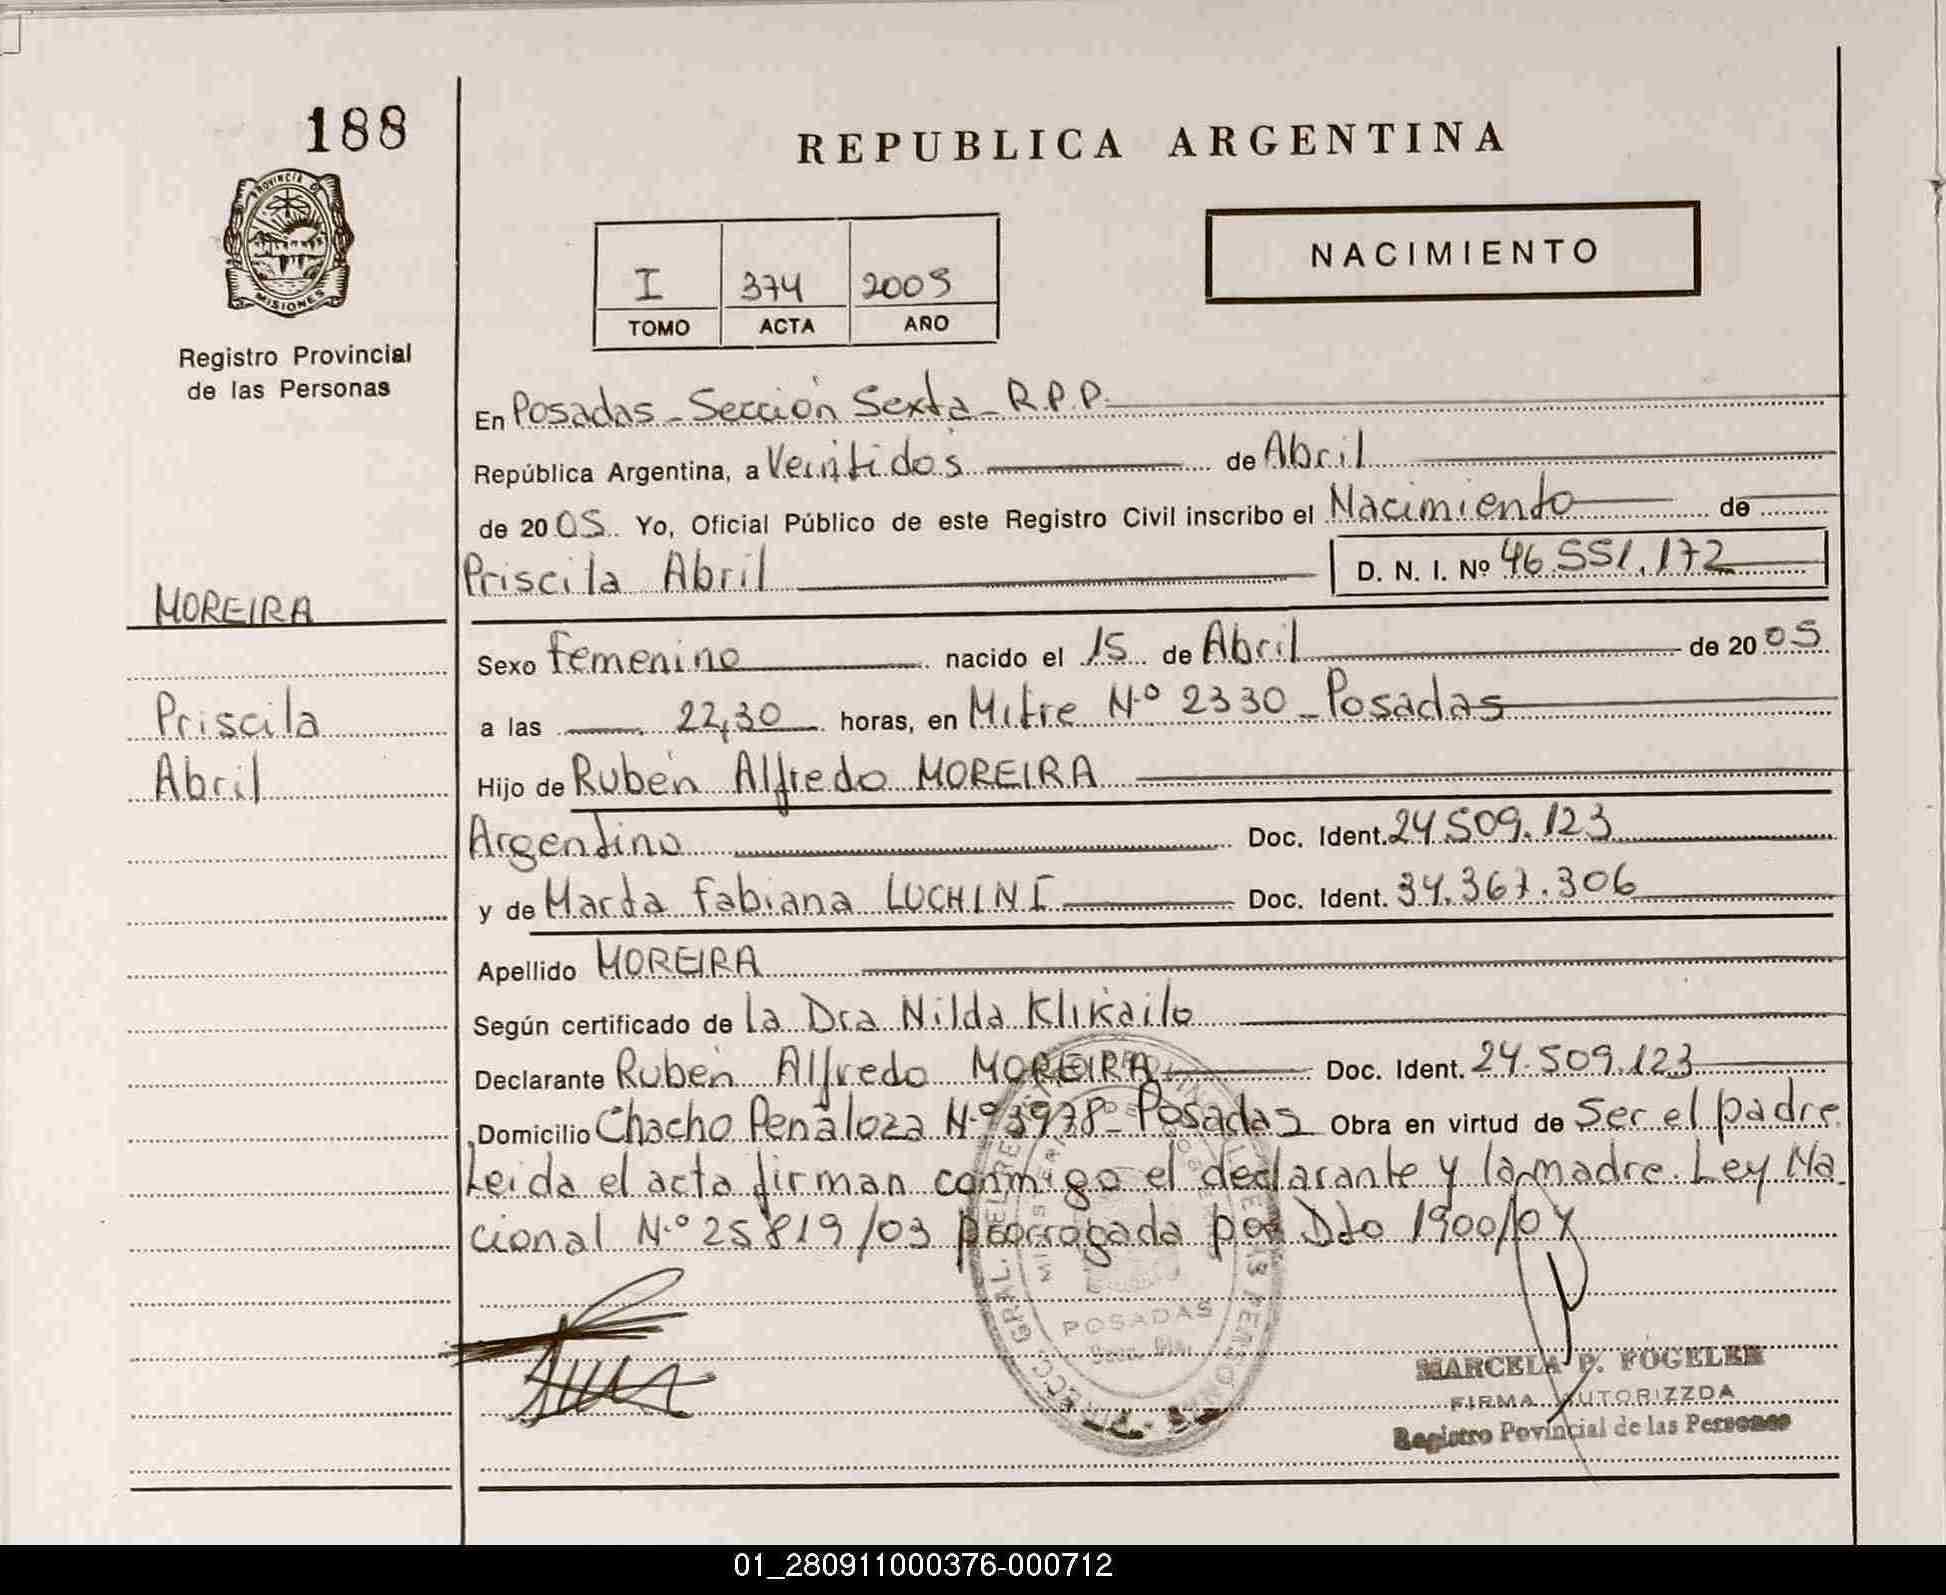 188
REPUBLICA ARGENTINA
PROVINCIA D
MISIONES
Registro Provincial
de las Personas
NACIMIENTO
I 374 2005
TOMO ACTA AÑO
En Posadas - Sección Sexta - R.P.P.
República Argentina, a Veintidós de Abril
de 2005. Yo, Oficial Público de este Registro Civil inscribo el Nacimiento de
Priscila Abril D. N. I. Nº 46.551.172
MOREIRA
Sexo Femenino nacido el 15 de Abril de 2005
Priscila
a las 22,30 horas, en Mitre Nº 2330 - Posadas
Abril
Hijo de Rubén Alfredo MOREIRA
Argentino Doc. Ident. 24.509.123
y de Marta Fabiana LUCHINI Doc. Ident. 34.367.306
Apellido MOREIRA
Según certificado de la Dra Nilda Klikailo
Declarante Rubén Alfredo MOREIRA Doc. Ident. 24.509.123
Domicilio Chacho Peñaloza Nº 3978 - Posadas Obra en virtud de Ser el padre.
Leida el acta firman conmigo el declarante y la madre. Ley Na
cional Nº 25819/03 prorrogada por Dto 1900/04
POSADAS
MARCELA P. FOGELER
FIRMA AUTORIZZDA
Registro Povincial de las Personas
01_280911000376-000712